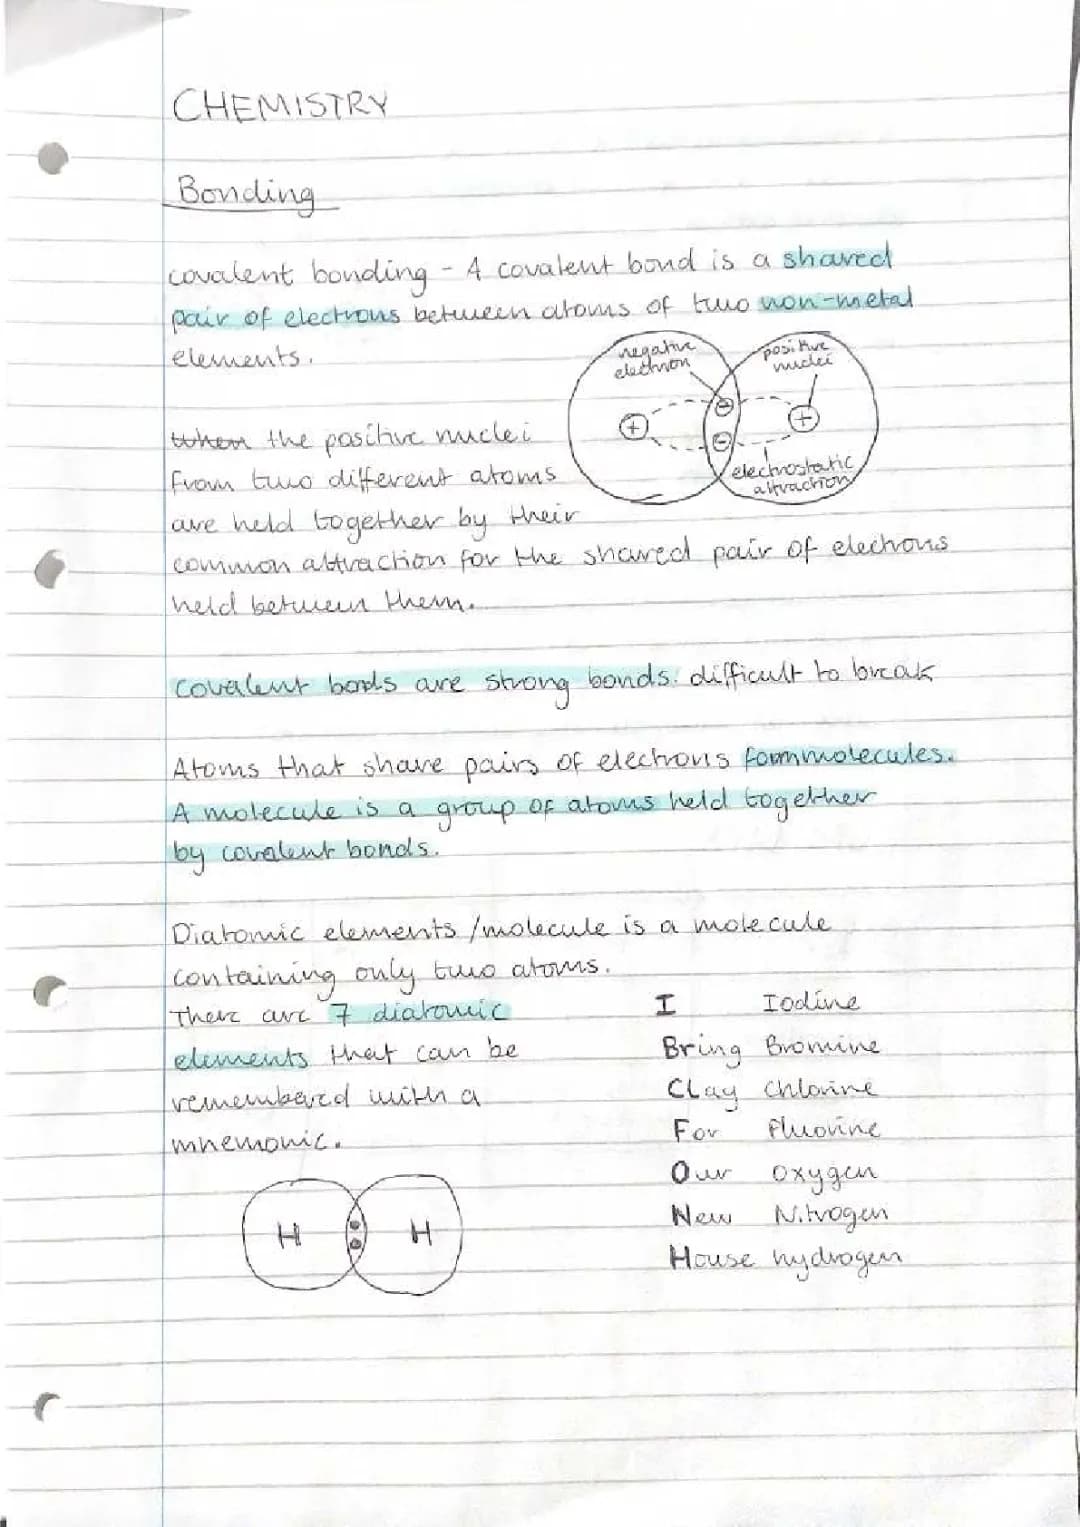 CHEMISTRY
Bonding
covalent bonding - A covalent bond is a shared
pair of electrons between atoms of two non-metal
elements.
negative
electron
positive
nuclei
+
-
-
+
electrostatic
attraction
When the positive nuclei
from two different atoms
are held together by their
common attraction for the shared pair of electrons
held between them.
Covalent bonds are strong bonds. difficult to break
Atoms that share pairs of electrons form molecules.
A molecule is a group of atoms held together
by covalent bonds.
Diatomic elements / molecule is a molecule
containing only two atoms.
There are 7 diatomic
elements that can be
remembered with a
mnemonic.
I Iodine
Bring Bromine
Clay Chlorine
For Fluorine
Our Oxygen
New Nitrogen
House hydrogen
H H